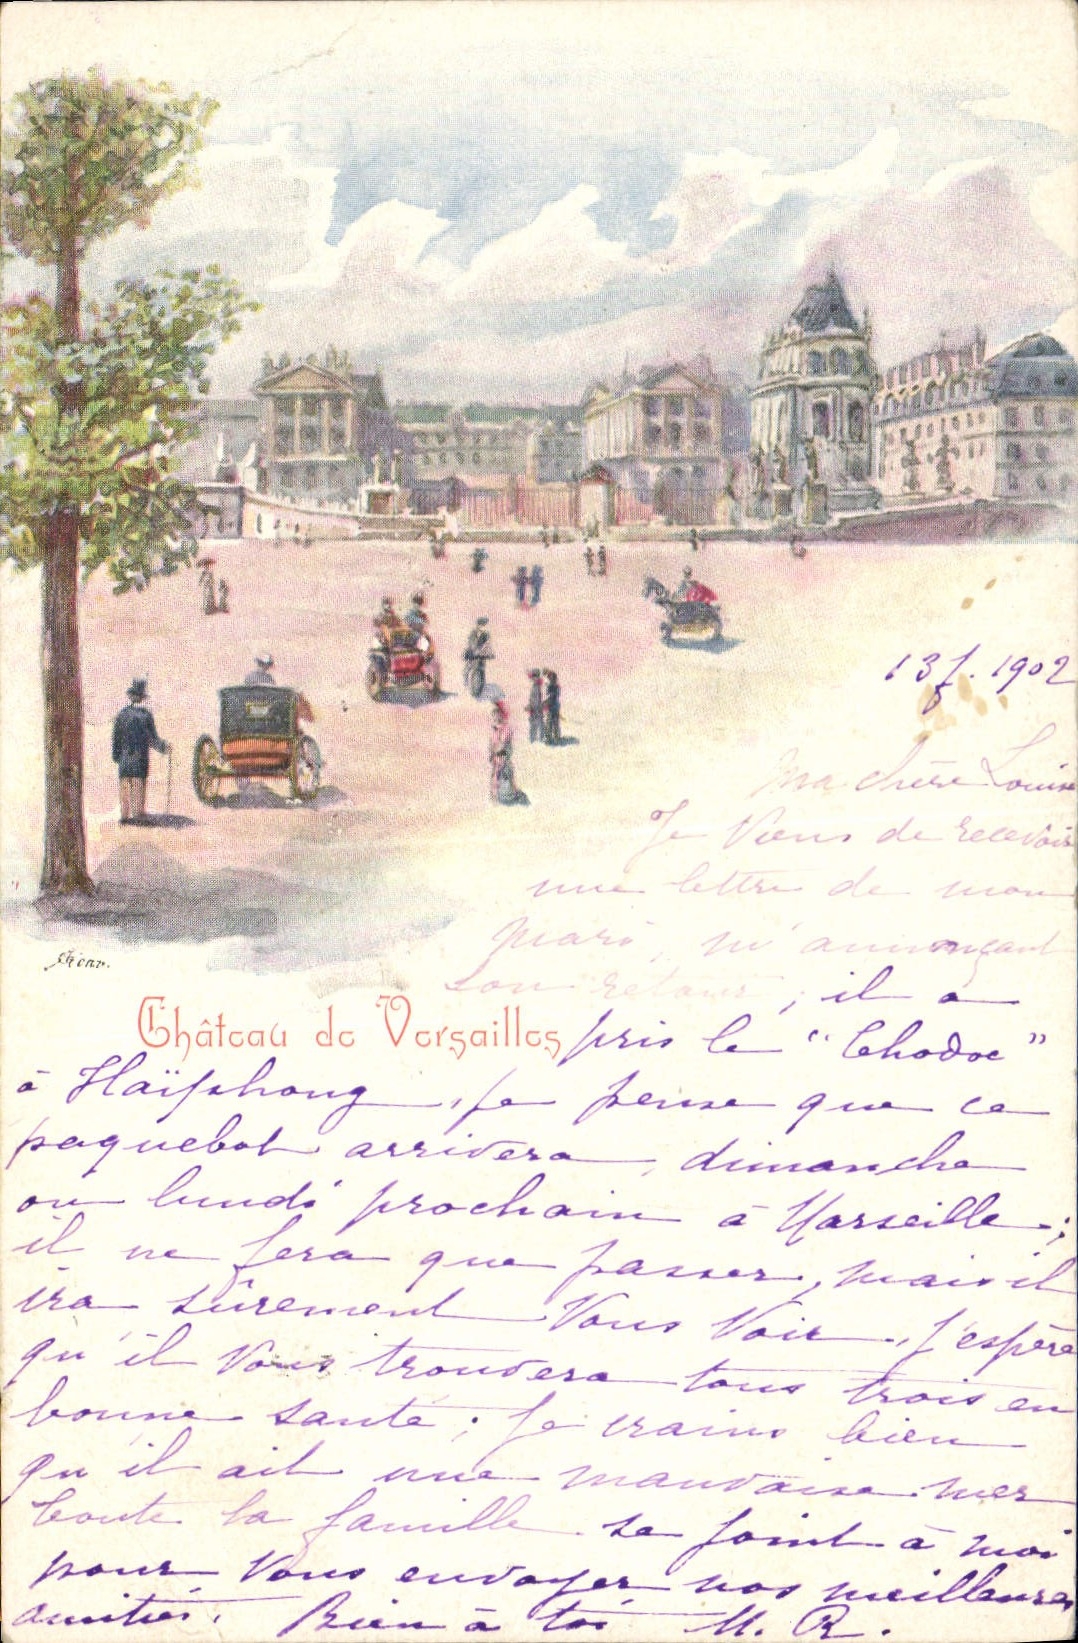 13 f. 1902
Ma chère Louise
Je viens de recevoir
une lettre de mon
mari, m'annonçant
son retour, il a
Château de Versailles
pris le "Chodoc"
à Haïphong, je pense que ce
paquebot arrivera, dimanche
ou lundi prochain à Marseille;
il ne fera que passer, mais il
ira sûrement vous voir, j'espère
qu'il vous trouvera tous trois en
bonne santé; je crains bien
qu'il ait une mauvaise mer
toute la famille se joint à moi
pour vous envoyer nos meilleures
amitiés. Bien à toi M. R.